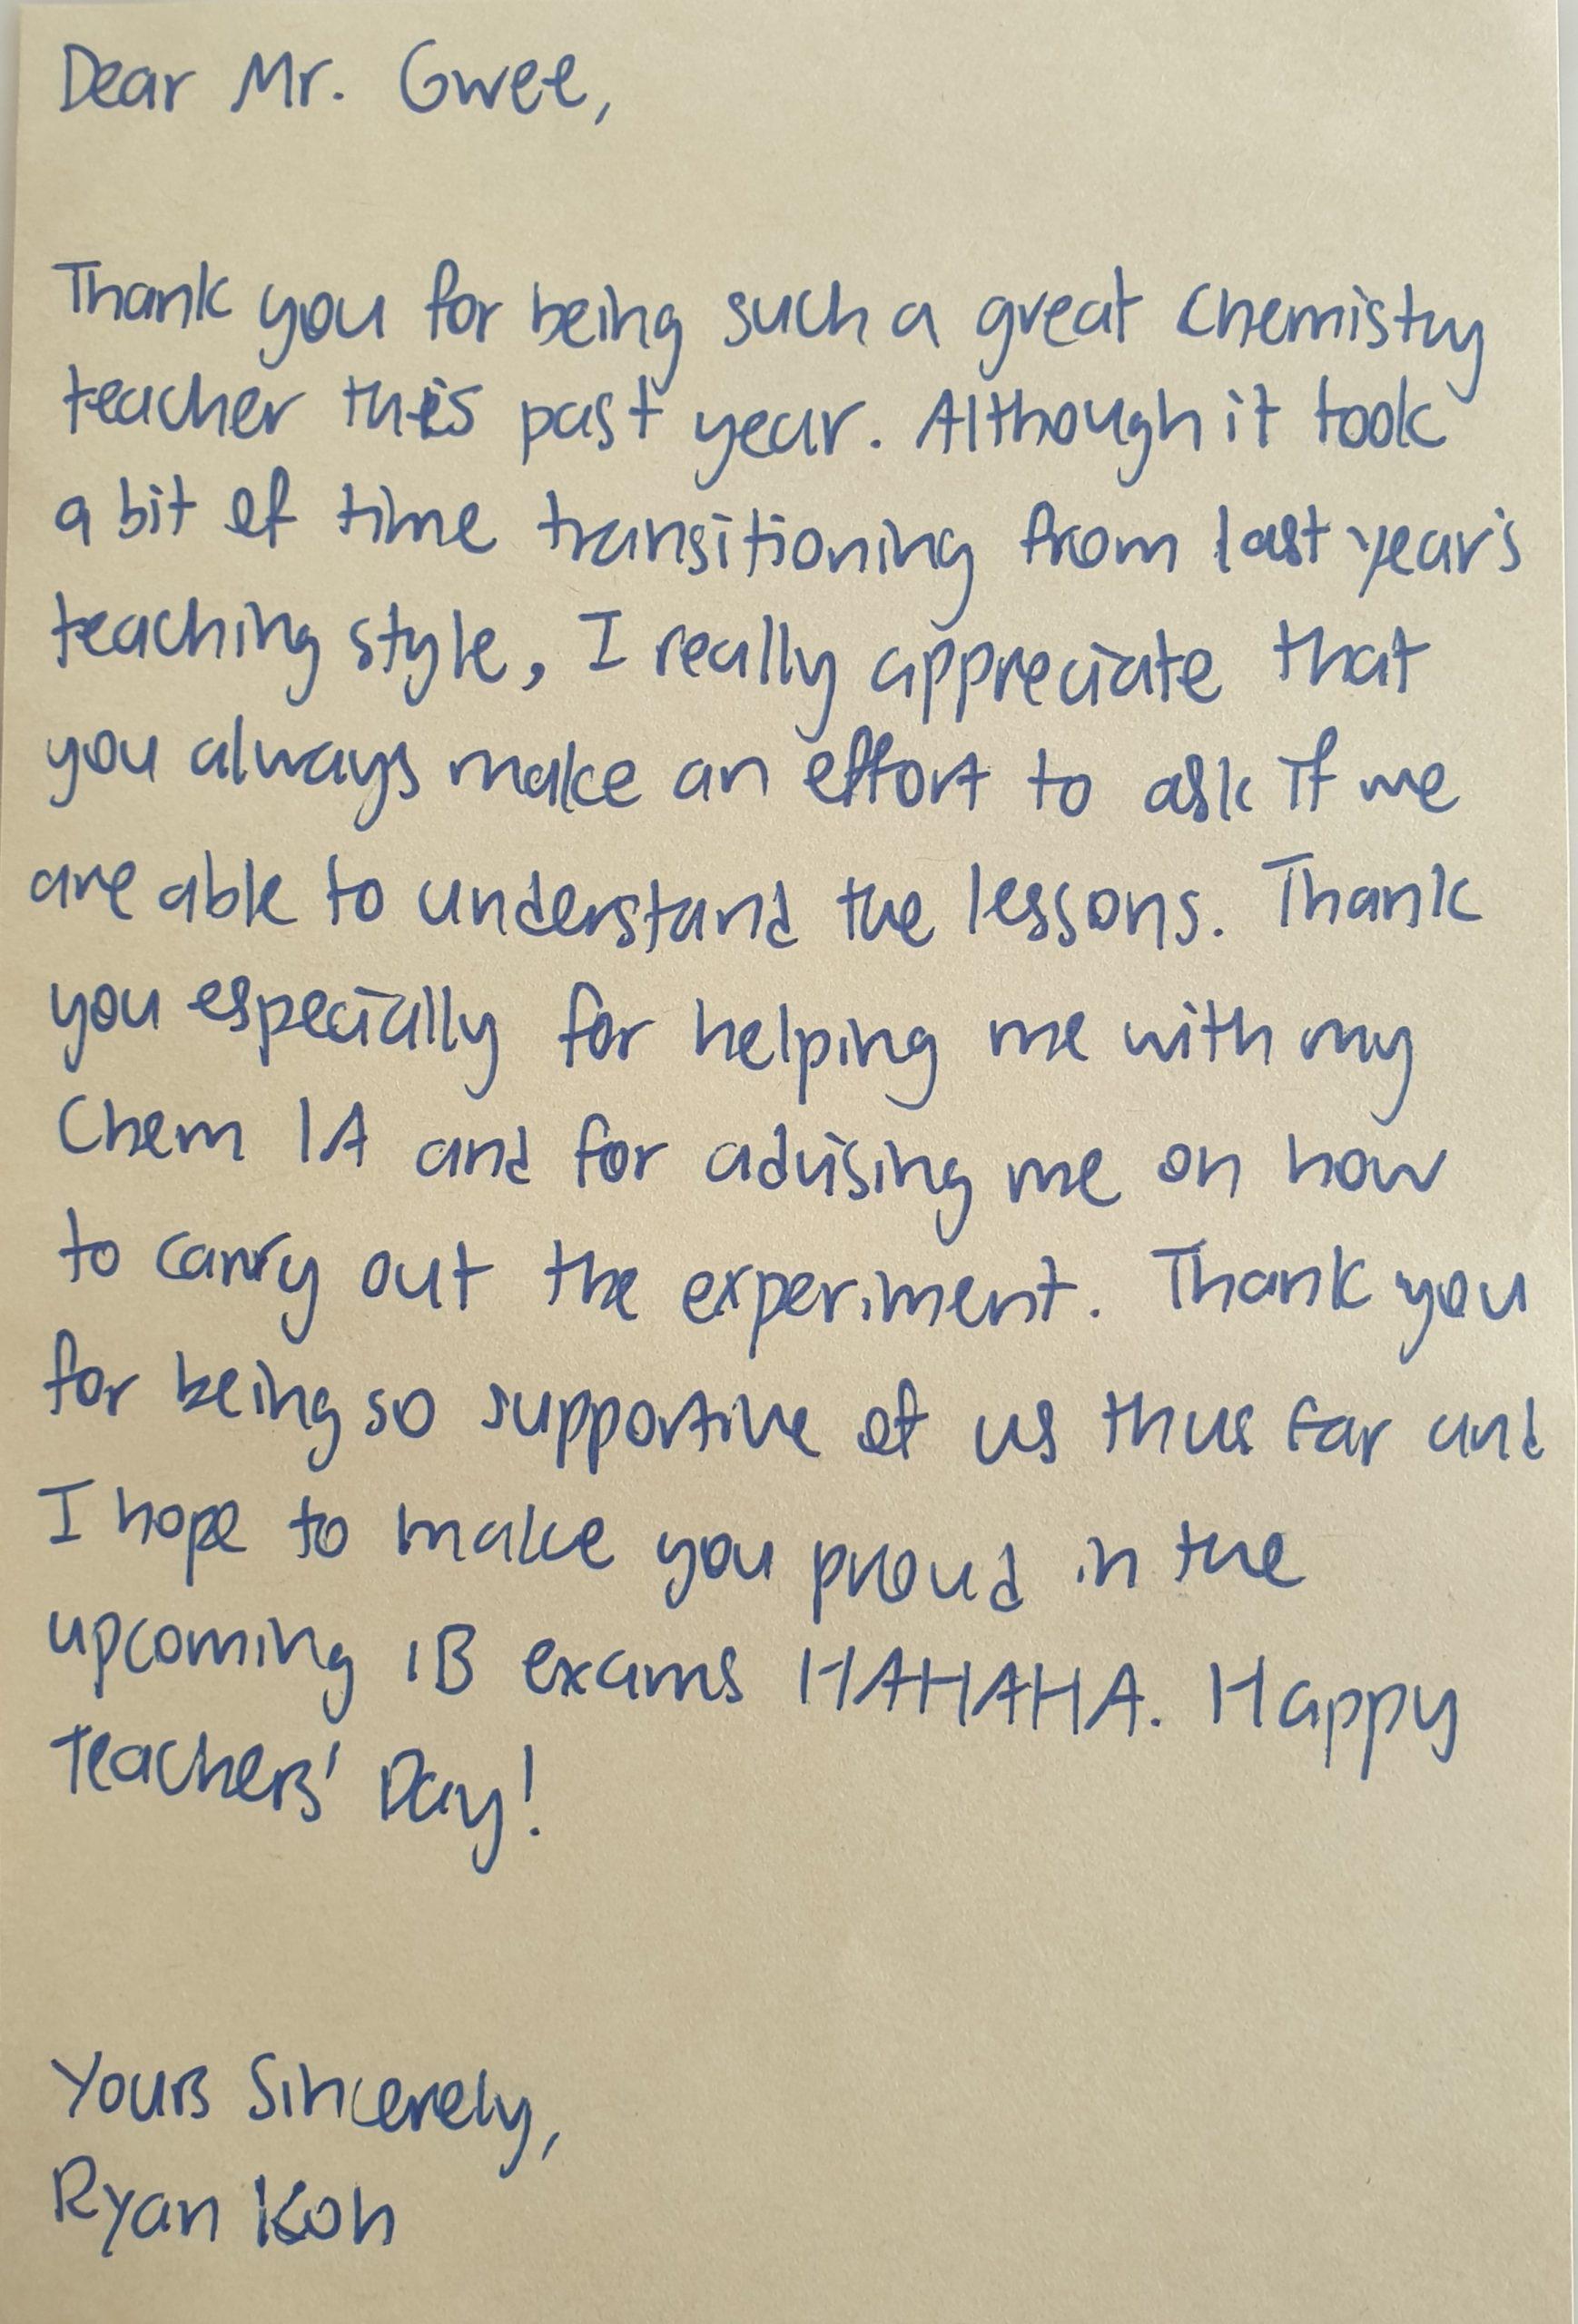 Dear Mr. Gwee,
Thank you for being such a great Chemistry
teacher this past year. Although it took
a bit of time transitioning from last year's
teaching style, I really appreciate that
you always make an effort to ask if we
are able to understand the lessons. Thank
you especially for helping me with my
Chem IA and for advising me on how
to carry out the experiment. Thank you
for being so supportive of us thus far and
I hope to make you proud in the
upcoming IB exams HAHAHA. Happy
Teachers' Day!
Yours Sincerely,
Ryan Koh